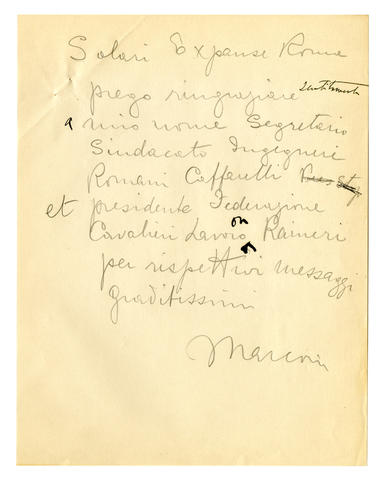 Solari Expanse Roma
prego ringraziare sentitamente
a mio nome Segretario
Sindacato Ingegneri
Romani Caffarelli
et presidente Federazione
Cavalieri Lavoro on Raineri
per rispettivi messaggi
graditissimi
Marconi